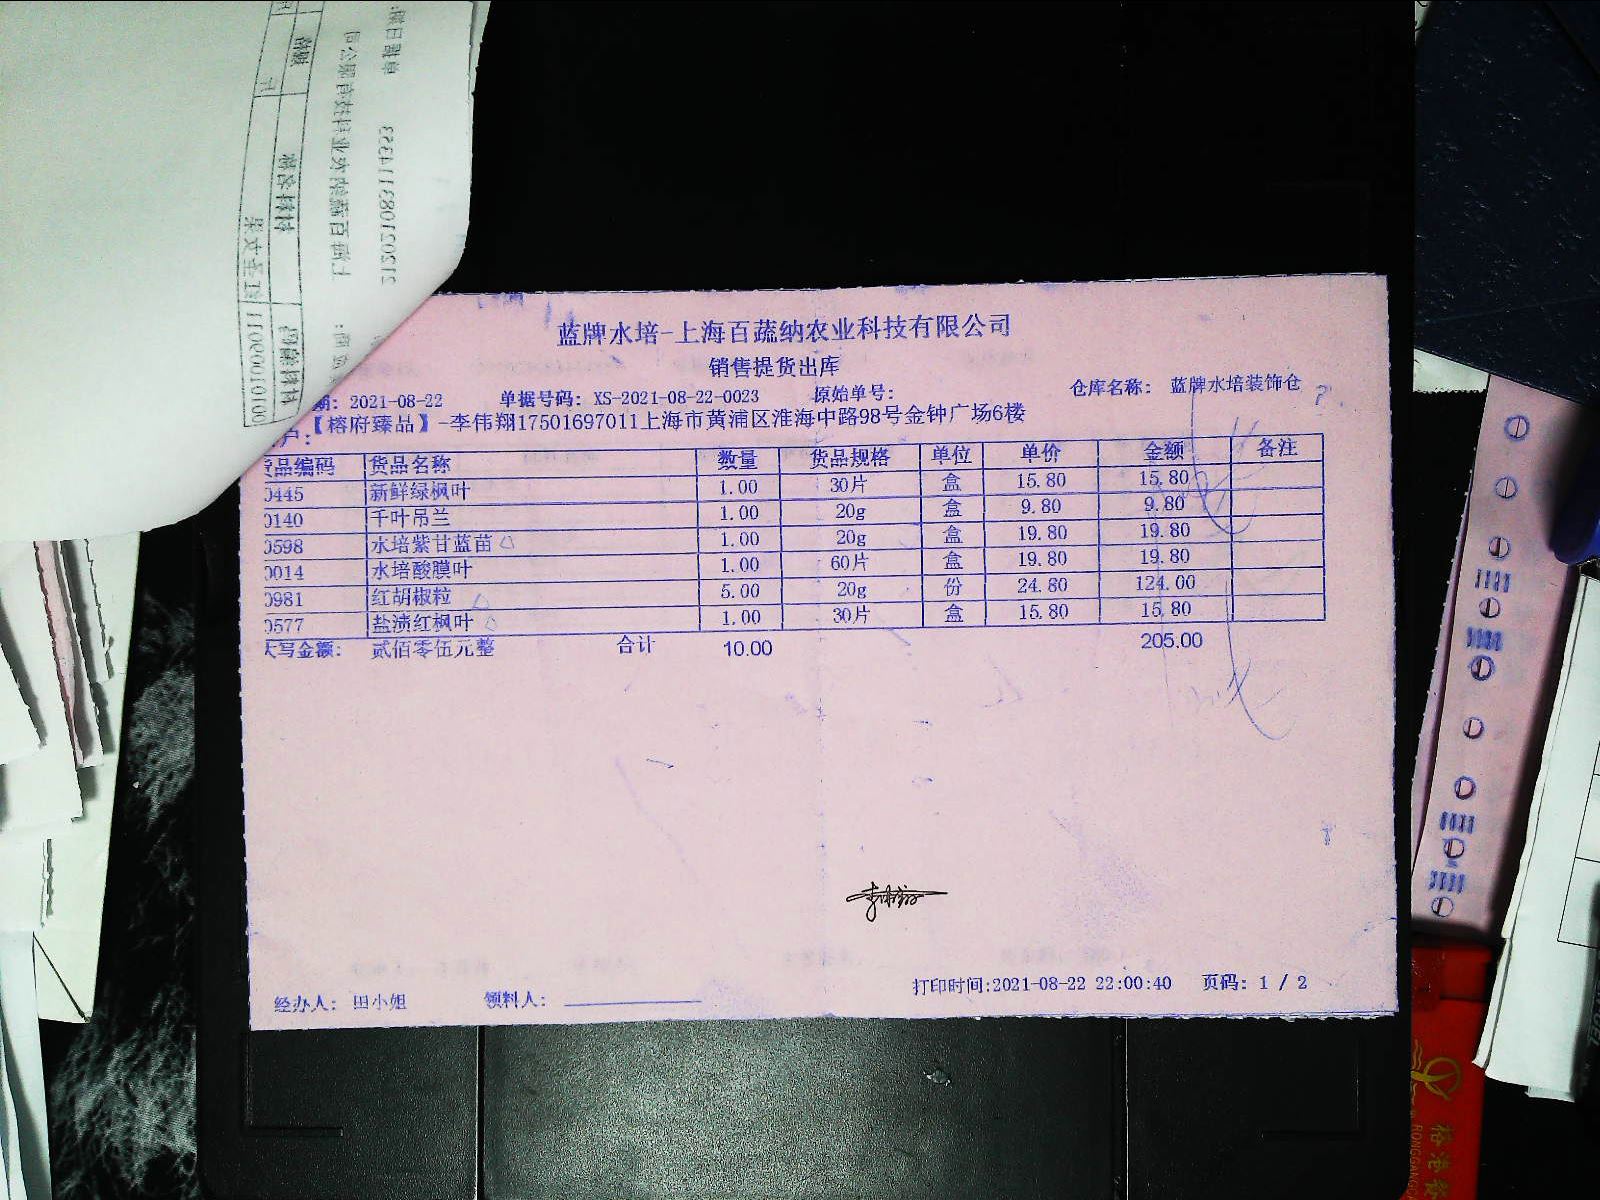 蓝牌水培-上海百蔬纳农业科技有限公司
销售提货出库
期: 2021-08-22 单据号码: XS-2021-08-22-0023 原始单号: 仓库名称: 蓝牌水培装饰仓
户: 【榕府臻品】-李伟翔17501697011上海市黄浦区淮海中路98号金钟广场6楼
货品编码 货品名称 数量 货品规格 单位 单价 金额 备注
0445 新鲜绿枫叶 1.00 30片 盒 15.80 15.80
0140 千叶吊兰 1.00 20g 盒 9.80 9.80
0598 水培紫甘蓝苗 1.00 20g 盒 19.80 19.80
0014 水培酸膜叶 1.00 60片 盒 19.80 19.80
0981 红胡椒粒 5.00 20g 份 24.80 124.00
0577 盐渍红枫叶 1.00 30片 盒 15.80 15.80
大写金额: 贰佰零伍元整 合计 10.00 205.00
打印时间:2021-08-22 22:00:40 页码: 1 / 2
经办人: 田小姐 领料人: